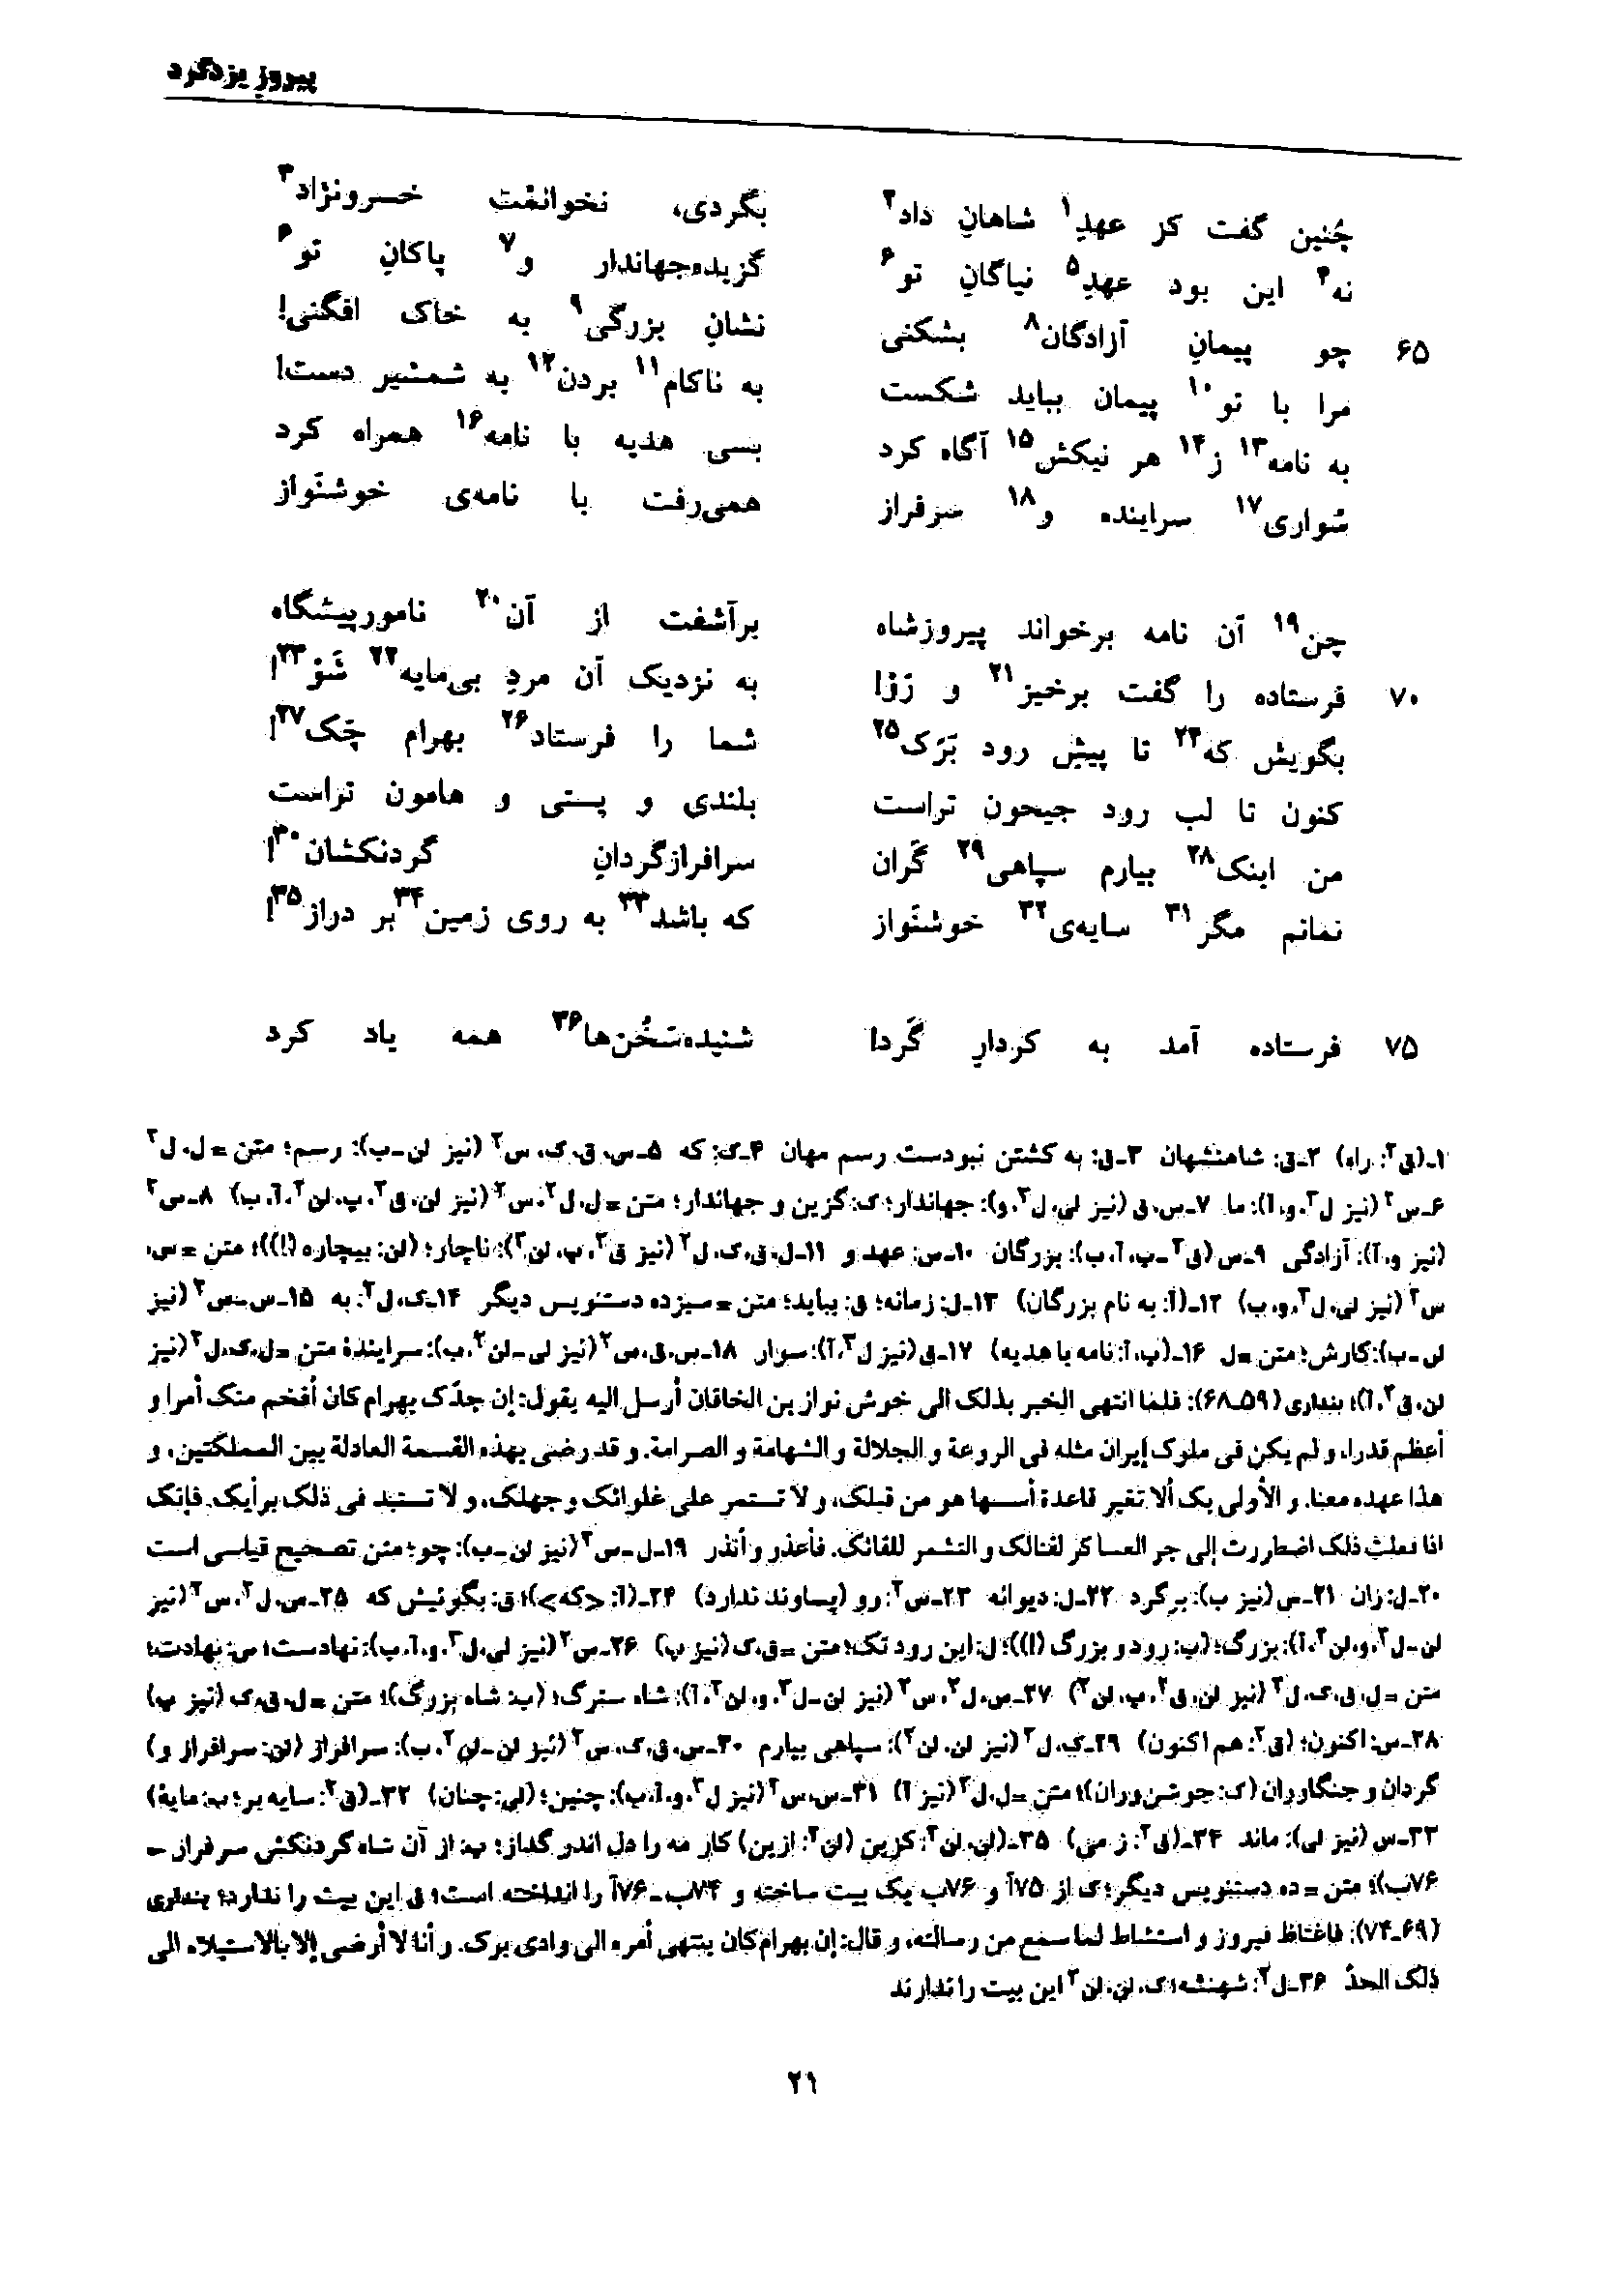 پیروز یزدگرد
چُنین گفت کز عهدِ۱ شاهانِ داد۲ بگردی، نخوانمْت خسرونژاد۳
نه۴ این بود عهدِ۵ نیاگانِ تو۶ گزیده‌جهاندار و۷ پاکانِ تو۶
۶۵ چو پیمانِ آزادگان۸ بشکنی نشانِ بزرگی۹ به خاک افگنی!
مرا با تو۱۰ پیمان بباید شکست به ناکام۱۱ بردن۱۲ به شمشیر دست!
به نامه۱۳ ز۱۴ هر نیکش۱۵ آگاه کرد بسی هدیه با نامه۱۶ همراه کرد
سُواری۱۷ سراینده و۱۸ سرفراز همی‌رفت با نامه‌ی خوشنَواز
چن۱۹ آن نامه برخواند پیروزشاه برآشفت از آن۲۰ نامورپیشگاه
۷۰ فرستاده را گفت برخیز۲۱ و رَوْ! به نزدیک آن مردِ بی‌مایه۲۲ شَوْ۲۳!
بگویش که۲۴ تا پیشِ رود بَرَک۲۵ شما را فرستاد۲۶ بهرام چَک۲۷!
کنون تا لب رود جیحون تراست بلندی و پستی و هامون تراست
من اینک۲۸ بیارم سپاهی۲۹ گَران سرافرازگردانِ گردنکشان۳۰!
نمانم مگر۳۱ سایه‌ی۳۲ خوشنَواز که باشد۳۳ به روی زمین۳۴ بر دراز۳۵!
۷۵ فرستاده آمد به کردارِ گَرد! شنیده‌سَخُن‌ها۳۶ همه یاد کرد
۱ـ(ق۲: راه) ۲ـق: شاهنشهان ۳ـق: به کشتن نبودست رسم مهان ۴ـک: که ۵ـس، ق، ک، س۲ (نیز لن ـ ب): رسم؛ متن = ل، ل۲
۶ـس۲ (نیز ل۳، و، آ): ما ۷ـس، ق (نیز لی، ل۳، و): جهاندار؛ ک: گزین و جهاندار؛ متن = ل، ل۲، س۲ (نیز لن، ق۲، پ، لن۲، آ، ب) ۸ـس۲
(نیز و، آ): آزادگی ۹ـس (ق۲ ـ پ، آ، ب): بزرگان ۱۰ـس: عهد و ۱۱ـل، ق، ک، ل۲ (نیز ق۲، پ، لن۲): ناچار؛ (لن: بیچاره (!))؛ متن = س،
س۲ (نیز لی، ل۳، و، ب) ۱۲ـ(آ: به نام بزرگان) ۱۳ـل: زمانه؛ ق: بباید؛ متن = سیزده دستنویس دیگر ۱۴ـک، ل۲: به ۱۵ـس ـ س۲ (نیز
لن ـ ب): کارش؛ متن = ل ۱۶ـ(پ، آ: نامه با هدیه) ۱۷ـق (نیز ل۳، آ): سوار ۱۸ـس، ق، س۲ (نیز لی ـ لن۲، ب): سرایندهٔ؛ متن = ل، ک، ل۲ (نیز
لن، ق۲، آ)؛ بنداری (۵۹ـ۶۸): فلما انتهی الخبر بذلک الی خوش نواز بن الخاقان أرسل الیه یقول: إن جدّک بهرام کان أفخم منک أمرا و
أعظم قدرا، و لم یکن فی ملوک إیران مثله فی الروعة و الجلالة و الشهامة و الصرامة. و قد رضی بهذه القسمة العادلة بین المملکتین، و
هذا عهده معنا. و الأولی بک ألا تغیر قاعدة أسسها هو من قبلک، و لا تستمر علی غلوائک و جهلک، و لا تستبد فی ذلک برأیک. فإنک
اذا فعلت ذلک اضطررت إلی جر العساکر لقتالک و التشمر للقائک. فأعذر و أنذر ۱۹ـل ـ س۲ (نیز لن ـ ب): چو؛ متن تصحیح قیاسی است
۲۰ـل: زان ۲۱ـس (نیز ب): برگرد ۲۲ـل: دیوانه ۲۳ـس۲: رو (پساوند ندارد) ۲۴ـ(آ: <که>)؛ ق: بگوئیش که ۲۵ـس، ل۲، س۲ (نیز
لن ـ ل۳، و، لن۲، آ): بزرگ؛ (ب: رود و بزرگ (!))؛ ل: این رود تک؛ متن = ق، ک (نیز پ) ۲۶ـس۲ (نیز لی، ل۳، و، آ، ب): نهادست؛ س: نهادت؛
متن = ل، ق، ک، ل۲ (نیز لن، ق۲، پ، لن۲) ۲۷ـس، ل۲، س۲ (نیز لن ـ ل۳، و، لن۲، آ): شاه سترگ؛ (ب: شاه بزرگ)؛ متن = ل، ق، ک (نیز پ)
۲۸ـس: اکنون؛ (ق۲: هم اکنون) ۲۹ـک، ل۲ (نیز لن، لن۲): سپاهی بیارم ۳۰ـس، ق، ک، س۲ (نیز لن ـ لن۲، ب): سرافراز (لن: سرافراز و)
گردان و جنگاوران (ک: جوشن‌وران)؛ متن = ل، ل۲ (نیز آ) ۳۱ـس، س۲ (نیز ل۳، و، آ، ب): چنین؛ (لی: چنان) ۳۲ـ(ق۲: سایه بر؛ ب: مایهٔ)
۳۳ـس (نیز لی): ماند ۳۴ـ(ق۲: ز می) ۳۵ـ(لن، لن۲: کزین (لن۲: ازین) کار مه را دل اندر گداز؛ ب: از آن شاه گردنکش سرفراز ←
۷۶ب)؛ متن = ده دستنویس دیگر؛ ک از ۷۵آ و ۷۶ب یک بیت ساخته و ۷۴ب ـ ۷۶آ را انداخته است؛ ق این بیت را ندارد؛ بنداری
(۶۹ـ۷۴): فاغتاظ فیروز و استشاط لما سمع من رسالته، و قال: إن بهرام کان ینتهی أمره الی وادی برک. و أنا لا أرضی إلا بالاستیلاء الی
ذلک الحدّ ۳۶ـل۲: شهنشه؛ ک، لن، لن۲ این بیت را ندارند
۲۱